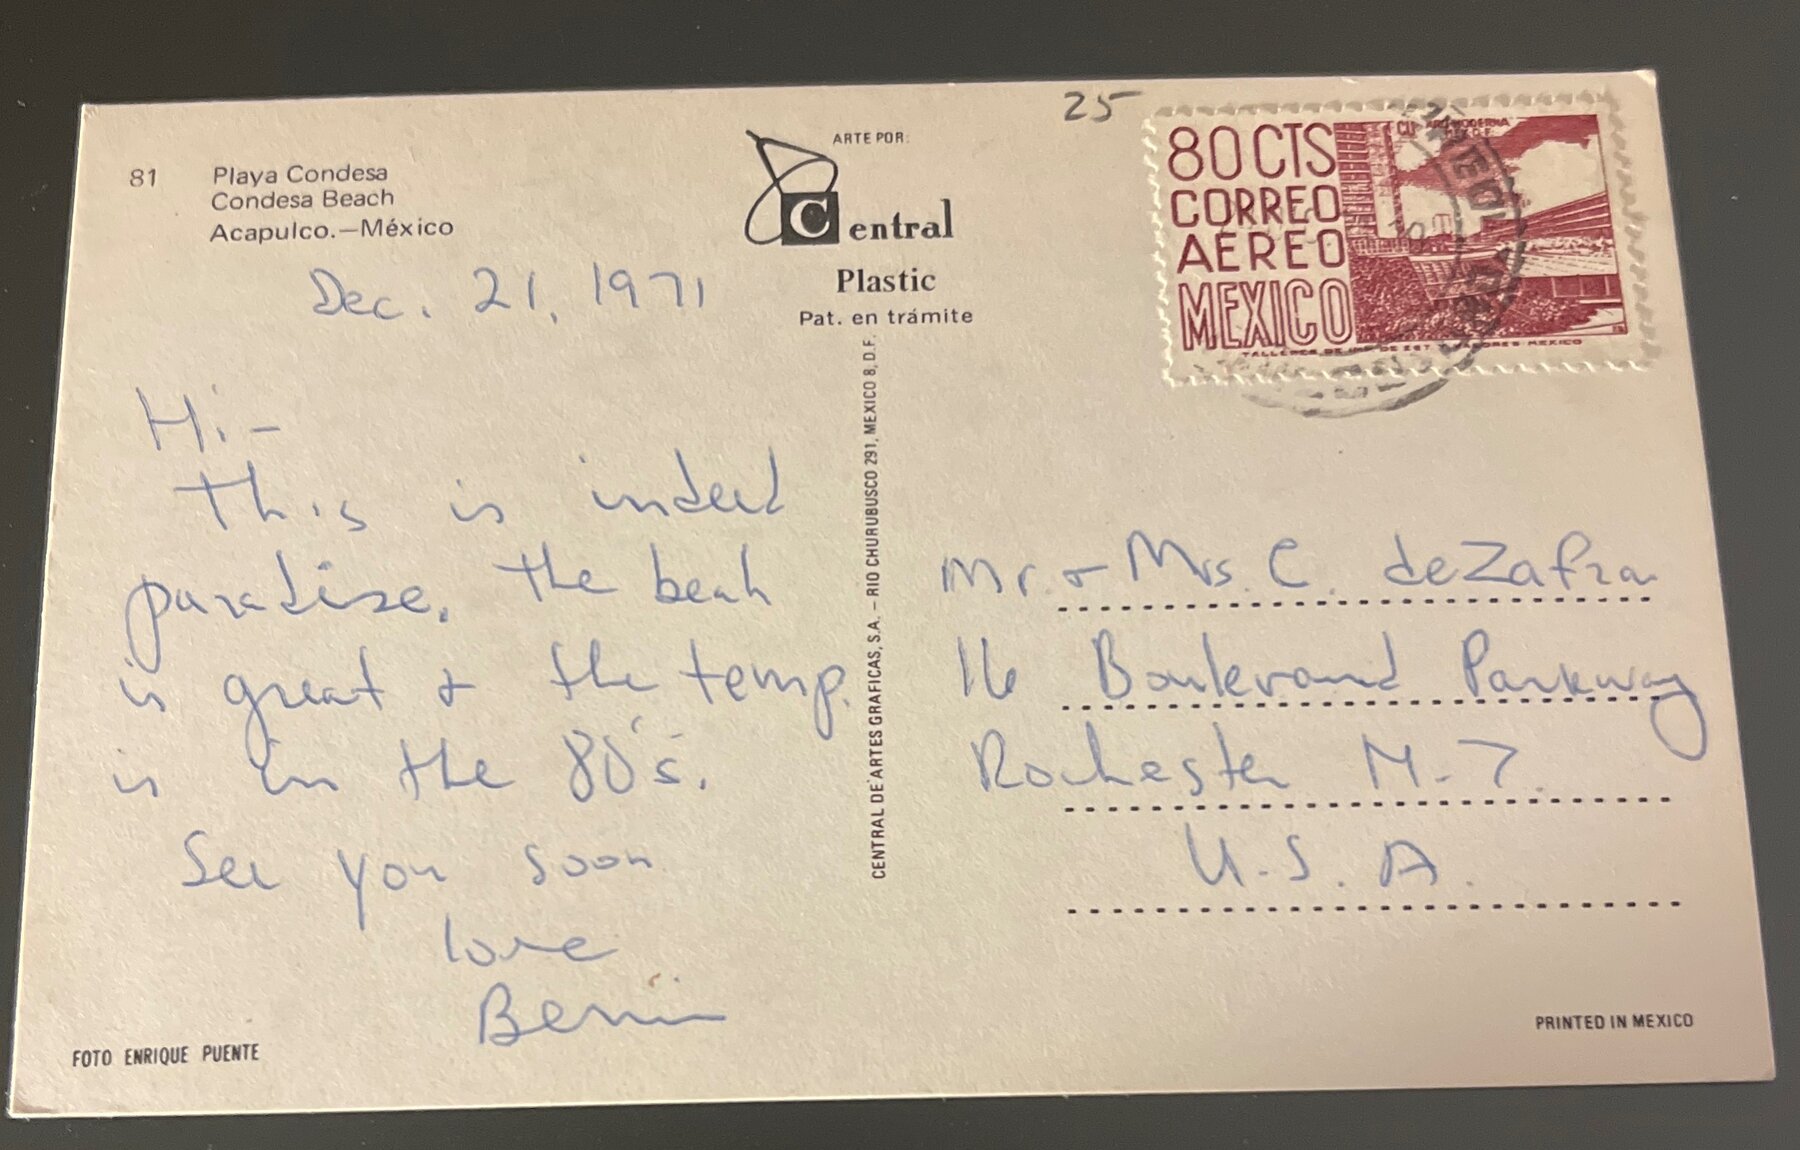 25
81 Playa Condesa
Condesa Beach
Acapulco.—México
ARTE POR:
Central
Plastic
Pat. en trámite
80 CTS
CORREO
AEREO
MEXICO
Dec. 21, 1971
Hi-
This is indeed
paradise. The beach
is great & the temp.
is in the 80's.
See you soon
love
FOTO ENRIQUE PUENTE
CENTRAL DE ARTES GRAFICAS, S.A. – RIO CHURUBUSCO 291, MEXICO 8, D.F.
Mr. & Mrs. C. deZafra
16 Boulevard Parkway
Rochester N.Y.
U.S.A.
PRINTED IN MEXICO